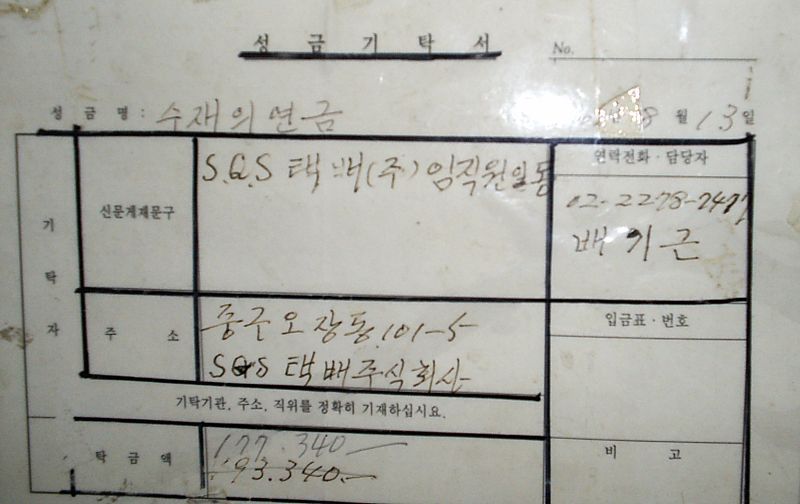 성 금 기 탁 서
No.
성 금 명 : 수재의연금
8 월 13 일
기 탁 자
신문게재문구
S.Q.S 택배(주)임직원일동
연락전화 · 담당자
02-2278-7477
배기근
주 소
중구오장동 101-5
SQS 택배주식회사
입금표 · 번호
기탁기관, 주소, 직위를 정확히 기재하십시요.
탁 금 액
177.340
193.340.-
비 고